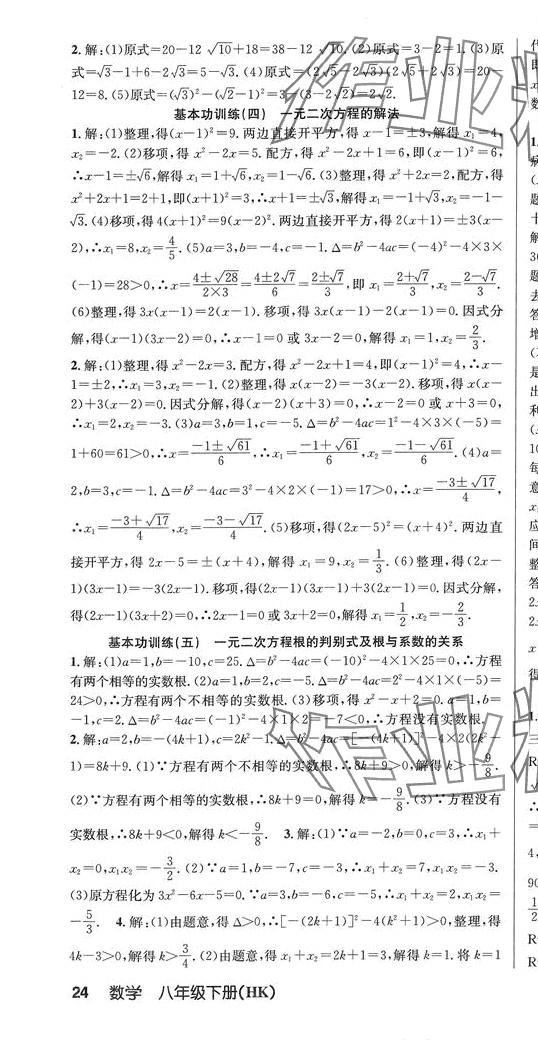 2.解:(1)原式=20-12√10+18=38-12√10.(2)原式=3-2=1.(3)原
式=√3-1+6-2√3=5-√3.(4)原式=(2√5-2√3)(2√5+2√3)=20-
12=8.(5)原式=(√3)²-(√2-1)²=3-(3-2√2)=2√2.
基本功训练(四) 一元二次方程的解法
1.解:(1)整理,得(x-1)²=9.两边直接开平方,得 x-1=±3,解得 x₁=4,
x₂=-2.(2)移项,得 x²-2x=5.配方,得 x²-2x+1=6,即(x-1)²=6,
∴x-1=±√6,解得 x₁=1+√6,x₂=1-√6.(3)整理,得 x²+2x=2.配方,得
x²+2x+1=2+1,即(x+1)²=3,∴x+1=±√3,解得 x₁=-1+√3,x₂=-1-
√3.(4)移项,得 4(x+1)²=9(x-2)².两边直接开平方,得 2(x+1)=±3(x-
2),∴x₁=8,x₂=4/5.(5)a=3,b=-4,c=-1.Δ=b²-4ac=(-4)²-4×3×
(-1)=28>0,∴x=(4±√28)/(2×3)=(4±2√7)/6=(2±√7)/3,即 x₁=(2+√7)/3,x₂=(2-√7)/3.
(6)整理,得 3x(x-1)=2(x-1).移项,得 3x(x-1)-2(x-1)=0.因式分
解,得(x-1)(3x-2)=0,∴x-1=0 或 3x-2=0,解得 x₁=1,x₂=2/3.
2.解:(1)整理,得 x²-2x=3.配方,得 x²-2x+1=4,即(x-1)²=4,∴x-
1=±2,∴x₁=3,x₂=-1.(2)整理,得 x(x-2)=-3(x-2).移项,得 x(x-
2)+3(x-2)=0.因式分解,得(x-2)(x+3)=0,∴x-2=0 或 x+3=0,
∴x₁=2,x₂=-3.(3)a=3,b=1,c=-5.Δ=b²-4ac=1²-4×3×(-5)=
1+60=61>0,∴x=(-1±√61)/6,∴x₁=(-1+√61)/6,x₂=(-1-√61)/6.(4)a=
2,b=3,c=-1.Δ=b²-4ac=3²-4×2×(-1)=17>0,∴x=(-3±√17)/4,
∴x₁=(-3+√17)/4,x₂=(-3-√17)/4.(5)移项,得(2x-5)²=(x+4)².两边直
接开平方,得 2x-5=±(x+4),解得 x₁=9,x₂=1/3.(6)整理,得(2x-
1)(3x-1)=-3(2x-1).移项,得(2x-1)(3x-1)+3(2x-1)=0.因式分解,
得(2x-1)(3x+2)=0,∴2x-1=0 或 3x+2=0,解得 x₁=1/2,x₂=-2/3.
基本功训练(五) 一元二次方程根的判别式及根与系数的关系
1.解:(1)a=1,b=-10,c=25.Δ=b²-4ac=(-10)²-4×1×25=0,∴方程
有两个相等的实数根.(2)a=1,b=2,c=-5.Δ=b²-4ac=2²-4×1×(-5)=
24>0,∴方程有两个不相等的实数根.(3)移项,得 x²-x+2=0.a=1,b=
-1,c=2.Δ=b²-4ac=(-1)²-4×1×2=-7<0,∴方程没有实数根.
2.解:a=2,b=-(4k+1),c=2k²-1.Δ=b²-4ac=[-(4k+1)]²-4×2(2k²-
1)=8k+9.(1)∵方程有两个不相等的实数根,∴8k+9>0,解得 k>-9/8.
(2)∵方程有两个相等的实数根,∴8k+9=0,解得 k=-9/8.(3)∵方程没有
实数根,∴8k+9<0,解得 k<-9/8. 3.解:(1)∵a=-2,b=0,c=3,∴x₁+
x₂=0,x₁x₂=-3/2.(2)∵a=1,b=-7,c=-3,∴x₁+x₂=7,x₁x₂=-3.
(3)原方程化为 3x²-6x-5=0.∵a=3,b=-6,c=-5,∴x₁+x₂=2,x₁x₂=
-5/3. 4.解:(1)由题意,得 Δ>0,∴[-(2k+1)]²-4(k²+1)>0,整理,得
4k-3>0,解得 k>3/4.(2)由题意,得 x₁+x₂=2k+1=3,解得 k=1.将 k=1
24 数学 八年级下册(HK)
作业精
作业精